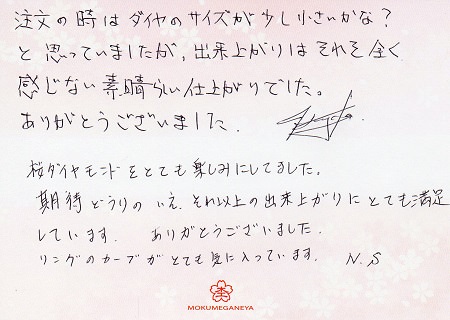 注文の時はダイヤのサイズが少し小さいかな?
と思っていましたが、出来上がりはそれを全く
感じない素晴らしい仕上がりでした。
ありがとうございました.
桜ダイヤモンドをとても楽しみにしてました。
期待どうりの いえ、それ以上の出来上がりにとても満足
しています. ありがとうございました.
リングのカーブがとても気に入っています. N.S
MOKUMEGANEYA